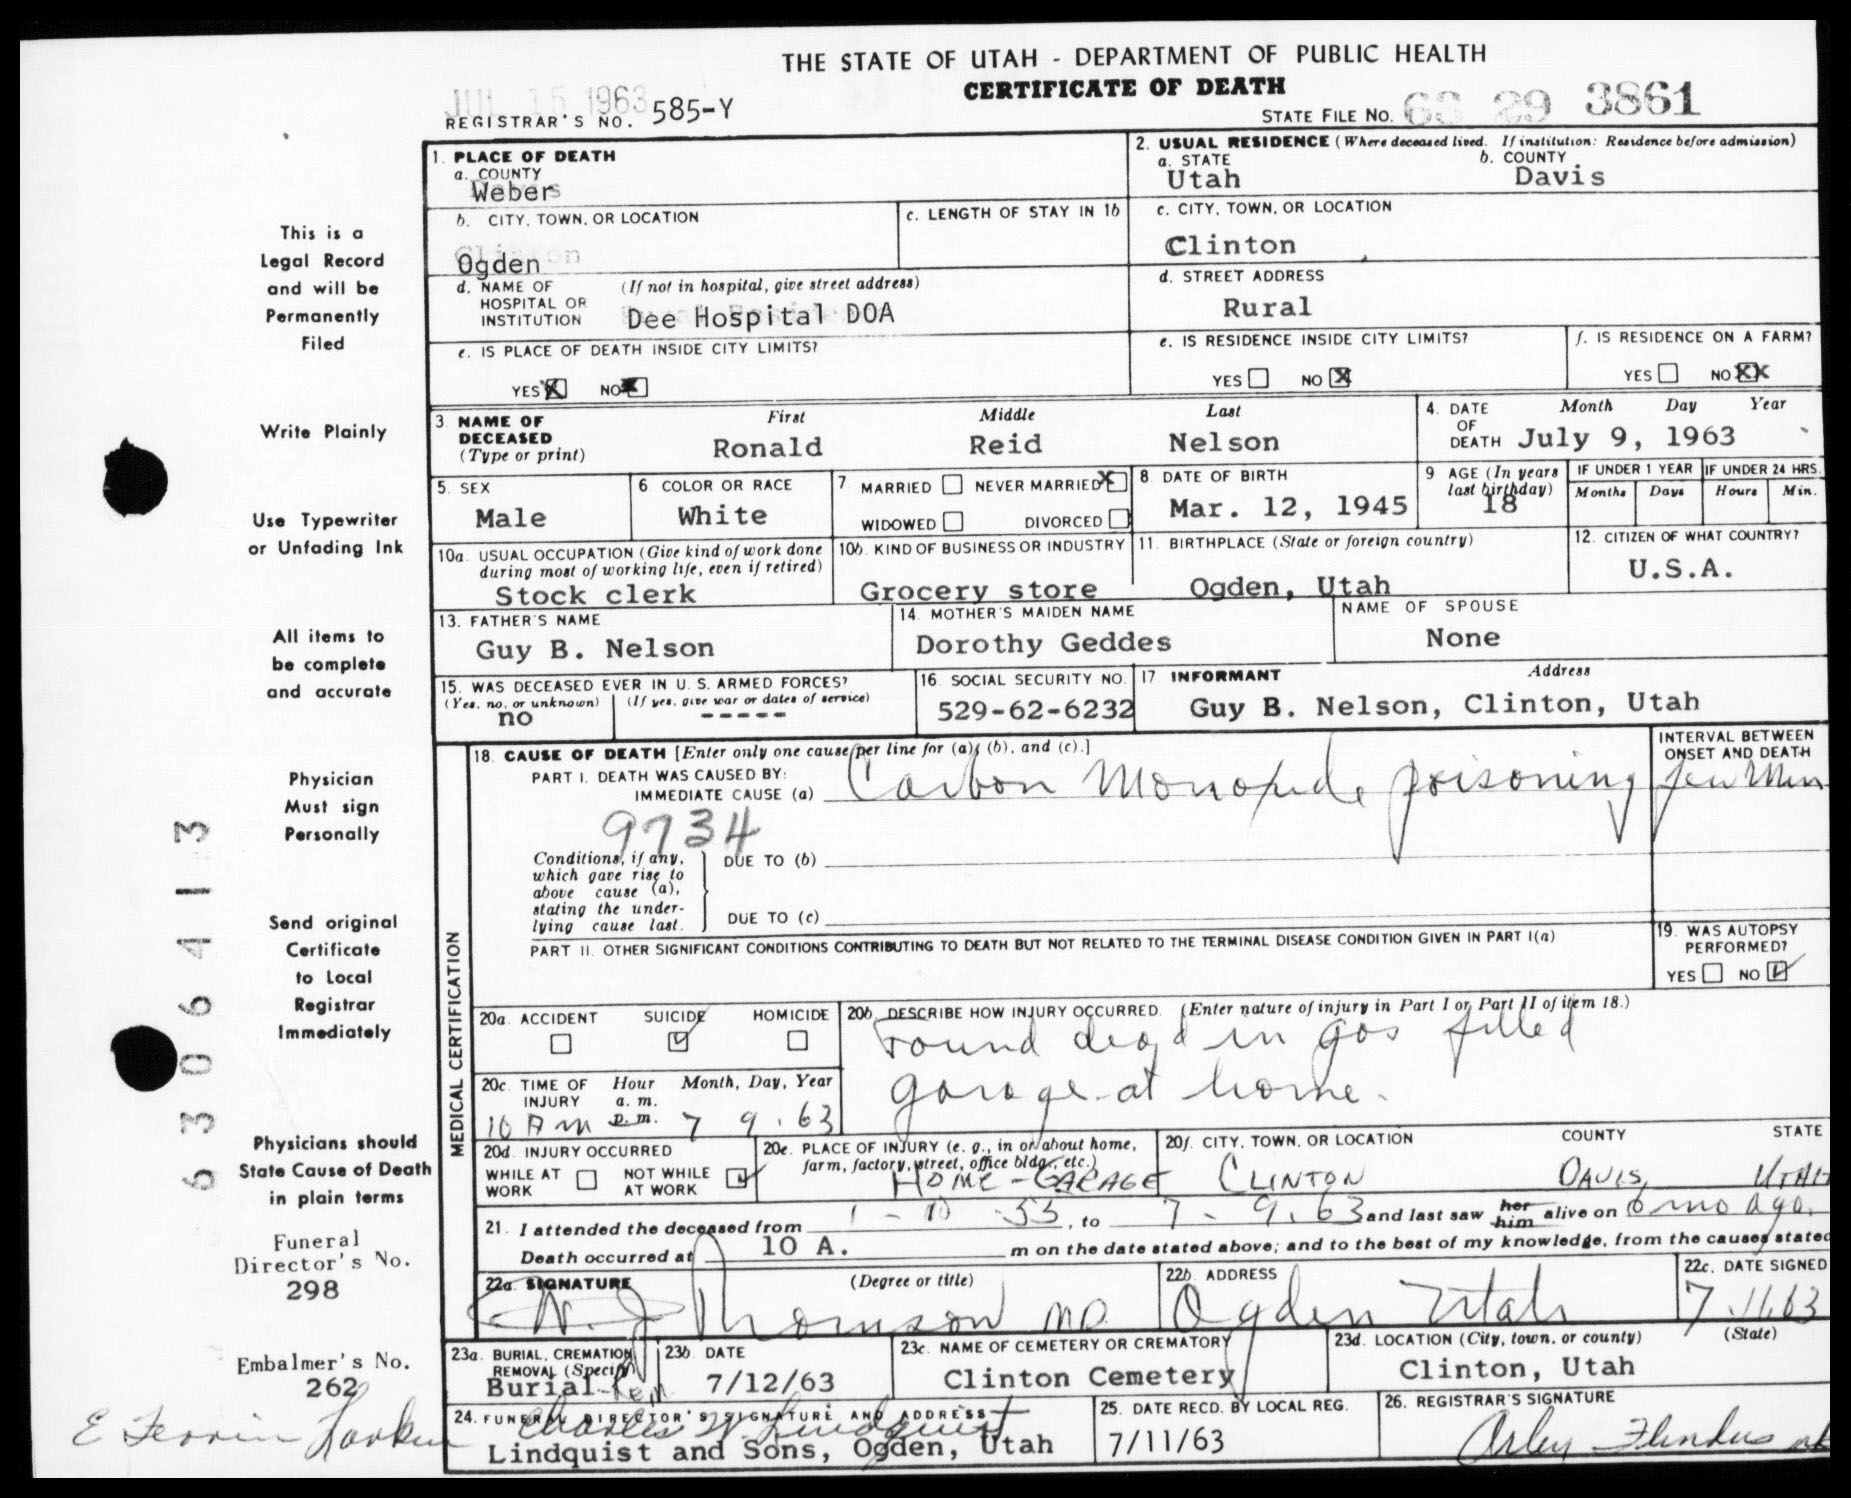 THE STATE OF UTAH - DEPARTMENT OF PUBLIC HEALTH
CERTIFICATE OF DEATH
JUL 15 1963
REGISTRAR'S NO. 585-Y
STATE FILE NO. 63 29 3861
1. PLACE OF DEATH
a. COUNTY
Weber
2. USUAL RESIDENCE (Where deceased lived. If institution: Residence before admission)
a. STATE b. COUNTY
Utah Davis
b. CITY, TOWN, OR LOCATION
Clinton
Ogden
c. LENGTH OF STAY IN 1b
c. CITY, TOWN, OR LOCATION
Clinton
d. NAME OF HOSPITAL OR INSTITUTION
(If not in hospital, give street address)
Dee Hospital DOA
d. STREET ADDRESS
Rural
e. IS PLACE OF DEATH INSIDE CITY LIMITS?
YES X NO X
e. IS RESIDENCE INSIDE CITY LIMITS?
YES NO X
f. IS RESIDENCE ON A FARM?
YES NO XX
3. NAME OF DECEASED
(Type or print)
First Middle Last
Ronald Reid Nelson
4. DATE OF DEATH
Month Day Year
July 9, 1963
5. SEX
Male
6 COLOR OR RACE
White
7. MARRIED NEVER MARRIED X
WIDOWED DIVORCED
8. DATE OF BIRTH
Mar. 12, 1945
9 AGE (In years last birthday)
18
IF UNDER 1 YEAR IF UNDER 24 HRS.
Months Days Hours Min.
10a. USUAL OCCUPATION (Give kind of work done during most of working life, even if retired)
Stock clerk
10b. KIND OF BUSINESS OR INDUSTRY
Grocery store
11. BIRTHPLACE (State or foreign country)
Ogden, Utah
12. CITIZEN OF WHAT COUNTRY?
U.S.A.
13. FATHER'S NAME
Guy B. Nelson
14. MOTHER'S MAIDEN NAME
Dorothy Geddes
NAME OF SPOUSE
None
15. WAS DECEASED EVER IN U. S. ARMED FORCES?
(Yes, no, or unknown) (If yes, give war or dates of service)
no -----
16. SOCIAL SECURITY NO.
529-62-6232
17 INFORMANT Address
Guy B. Nelson, Clinton, Utah
MEDICAL CERTIFICATION
18. CAUSE OF DEATH [Enter only one cause per line for (a), (b), and (c).]
PART I. DEATH WAS CAUSED BY:
IMMEDIATE CAUSE (a) Carbon Monoxide poisoning
INTERVAL BETWEEN ONSET AND DEATH
few Min
9734
Conditions, if any, which gave rise to above cause (a), stating the underlying cause last.
DUE TO (b)
DUE TO (c)
PART II. OTHER SIGNIFICANT CONDITIONS CONTRIBUTING TO DEATH BUT NOT RELATED TO THE TERMINAL DISEASE CONDITION GIVEN IN PART I(a)
19. WAS AUTOPSY PERFORMED?
YES NO
20a. ACCIDENT SUICIDE HOMICIDE
20b. DESCRIBE HOW INJURY OCCURRED. (Enter nature of injury in Part I or Part II of item 18.)
Found dead in gas filled
garage at home.
20c. TIME OF INJURY
Hour Month, Day, Year
a. m.
p. m.
10 AM 7 9. 63
20d. INJURY OCCURRED
WHILE AT WORK NOT WHILE AT WORK
20e. PLACE OF INJURY (e. g., in or about home, farm, factory, street, office bldg., etc.)
HOME - GARAGE
20f. CITY, TOWN, OR LOCATION COUNTY STATE
CLINTON DAVIS UTAH
21. I attended the deceased from 1 - 10 - 55, to 7 - 9. 63 and last saw her him alive on 6 mo ago.
Death occurred at 10 A. m on the date stated above; and to the best of my knowledge, from the causes stated
22a. SIGNATURE (Degree or title)
Thomson MD.
22b. ADDRESS
Ogden Utah
22c. DATE SIGNED
7.11.63
23a. BURIAL, CREMATION, REMOVAL (Specify)
Burial
23b. DATE
7/12/63
23c. NAME OF CEMETERY OR CREMATORY
Clinton Cemetery
23d. LOCATION (City, town, or county) (State)
Clinton, Utah
24. FUNERAL DIRECTOR'S SIGNATURE AND ADDRESS
Charles W. Lindquist
Lindquist and Sons, Ogden, Utah
25. DATE RECD. BY LOCAL REG.
7/11/63
26. REGISTRAR'S SIGNATURE
This is a
Legal Record
and will be
Permanently
Filed
Write Plainly
Use Typewriter
or Unfading Ink
All items to
be complete
and accurate
Physician
Must sign
Personally
Send original
Certificate
to Local
Registrar
Immediately
Physicians should
State Cause of Death
in plain terms
Funeral
Director's No.
298
Embalmer's No.
262
E Ferrin Larkin
6306413